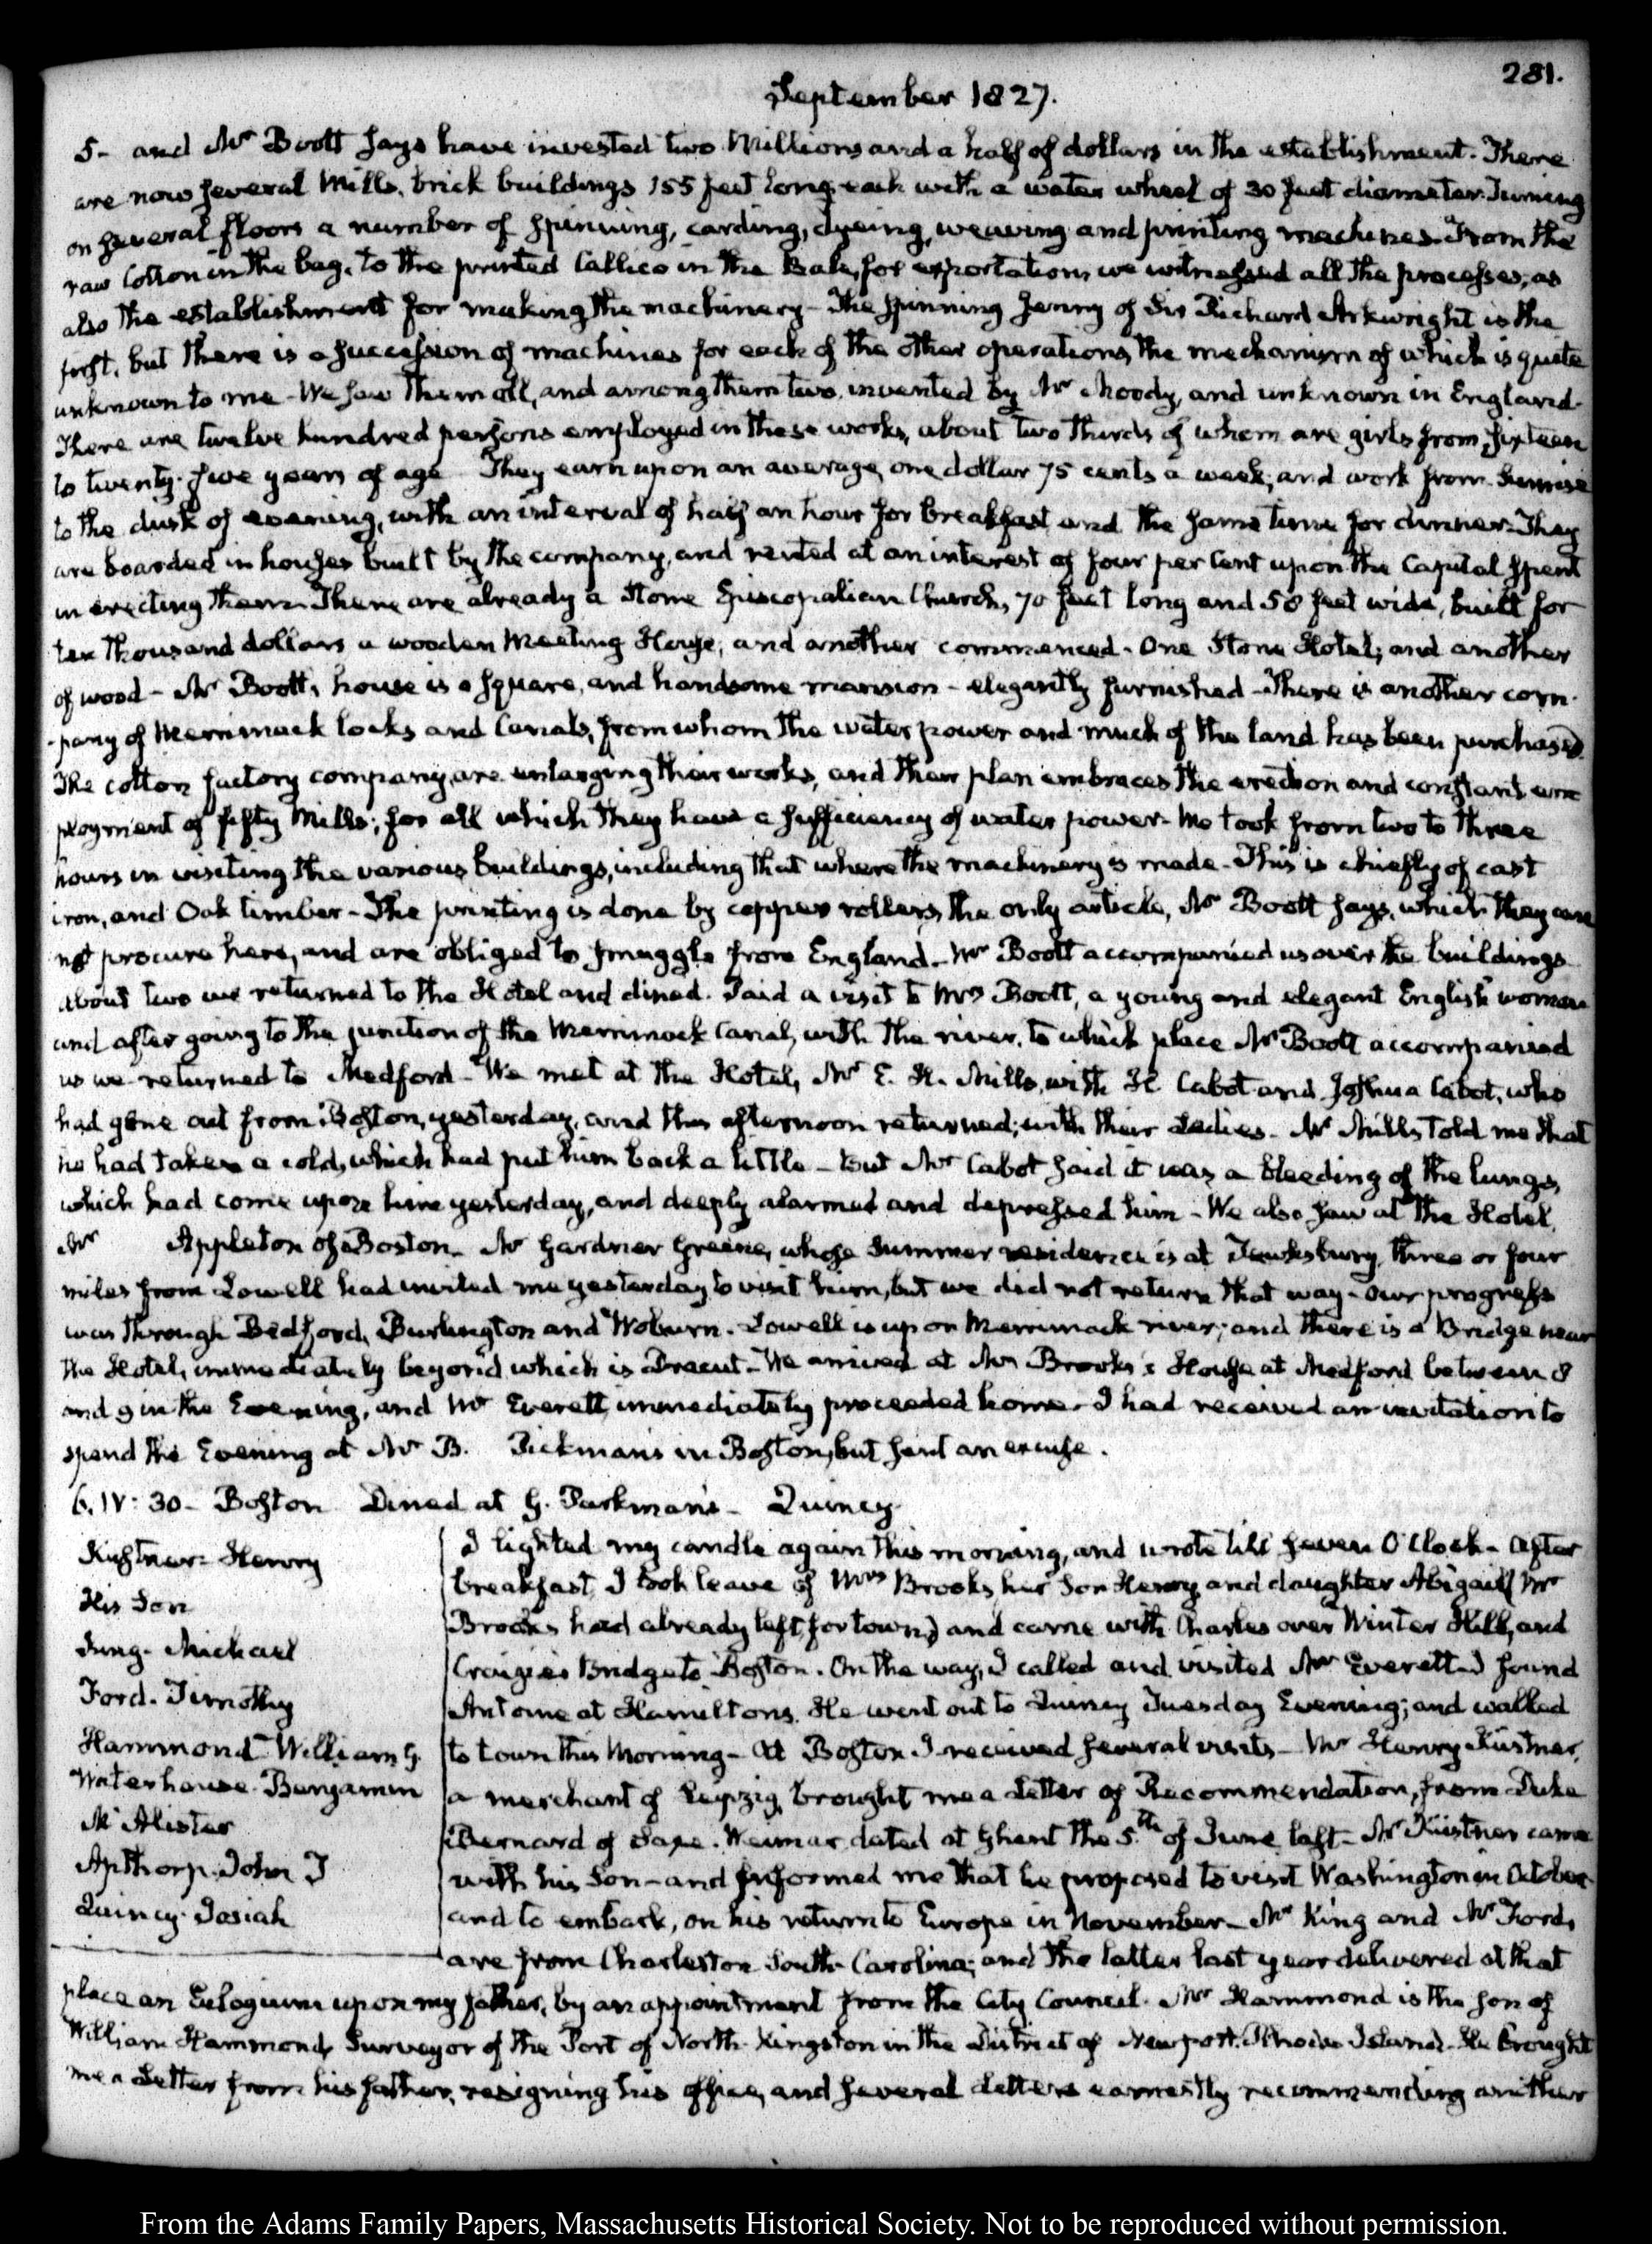 281.
September 1827.
5- and Mr Boott says have invested two Millions and a half of dollars in the establishment. There
are now several Mills, brick buildings 155 feet long, each with a water wheel of 30 feet diameter. Turning
on several floors a number of spinning, carding, dyeing, weaving and printing machines. From the
raw Cotton in the bag, to the printed Callico in the Bale, for exportation, we witnessed all the processes; as
also the establishment for making the machinery- The spinning Jenny of Sir Richard Arkwright is the
first, but there is a succession of machines for each of the other operations, the mechanism of which is quite
unknown to me- We saw them all, and among them two, invented by Mr Moody, and unknown in England.
There are twelve hundred persons employed in these works, about two thirds of whom are girls from sixteen
to twenty-five years of age They earn upon an average, one dollar 75 cents a week; and work from Sunrise
to the dusk of evening, with an interval of half an hour for breakfast and the same time for dinner. They
are boarded in houses built by the company, and rented at an interest of four per Cent upon the Capital spent
in erecting them. There are already a Stone Episcopalian Church, 70 feet long and 50 feet wide, built for
ten thousand dollars a wooden Meeting House; and another commenced- One Stone Hotel; and another
of wood- Mr Boott's house is a square, and handsome mansion- elegantly furnished- There is another com-
-pany of Merrimack locks and Canals, from whom the water power and much of the land has been purchased.
The cotton factory company, are enlarging their works, and their plan embraces the erection and constant em
ployment of fifty Mills; for all which they have a sufficiency of water power- We took from two to three
hours in visiting the various buildings, including that where the machinery is made- This is chiefly of cast
iron, and Oak timber- The printing is done by copper rollers, the only article, Mr Boott says, which they can
not procure here, and are obliged to smuggle from England- Mr Boott accompanied us over the buildings
about two we returned to the Hotel and dined. Paid a visit to Mrs Boott, a young and elegant English woman
and after going to the junction of the Merrimack Canal, with the river, to which place Mr Boott accompanied
us we returned to Medford- We met at the Hotel, Mr E. H. Mills, with H Cabot and Joshua Cabot, who
had gone out from Boston, yesterday, and this afternoon returned; with their Ladies- Mr Mills told me that
he had taken a cold, which had put him back a little- But Mr Cabot said it was a bleeding of the lungs,
which had come upon him yesterday, and deeply alarmed and depressed him- We also saw at the Hotel,
Mr Appleton of Boston- Mr Gardner Greene, whose Summer residence is at Tewksbury, three or four
miles from Lowell had invited me yesterday to visit him, but we did not return that way- our progress
was through Bedford, Burlington and Woburn. Lowell is upon Merrimack river; and there is a Bridge near
the Hotel, immediately beyond which is Dracut- We arrived at Mr Brooks's House at Medford between 8
and 9 in the Evening, and Mr Everett immediately proceeded home- I had received an invitation to
spend the Evening at Mr B. Pickman's in Boston, but sent an excuse.
6. IV: 30- Boston Dined at G. Parkman's- Quincy
Kustner- Henry
His Son
King- Michael
Ford- Timothy
Hammond- William G.
Waterhouse- Benjamin
Mc Alister
Apthorp- John T
Quincy- Josiah
I lighted my candle again this morning, and wrote till seven O'Clock- After
breakfast I took leave of Mrs Brooks, her Son Henry and daughter Abigail (Mr
Brooks had already left for town) and came with Charles over Winter Hill, and
Craigie's Bridge to Boston. On the way, I called and visited Mr Everett- I found
Antoine at Hamilton's. He went out to Quincy Tuesday Evening; and walked
to town this Morning- At Boston I received several visits- Mr Henry Küstner,
a merchant of Leipzig, brought me a Letter of Recommendation, from Duke
Bernard of Saxe-Weimar dated at Ghent the 5th of June last- Mr Küstner came
with his Son- and informed me that he proposed to visit Washington in October
and to embark, on his return to Europe in November- Mr King and Mr Ford,
are from Charleston South-Carolina; and the latter last year delivered at that
place an Eulogium upon my father, by an appointment from the City Council. Mr Hammond is the son of
William Hammond, Surveyor of the Port of North-Kingston in the District of Newport. Rhode-Island- He brought
me a Letter from his father, resigning his office, and several Letters earnestly recommending another
From the Adams Family Papers, Massachusetts Historical Society. Not to be reproduced without permission.